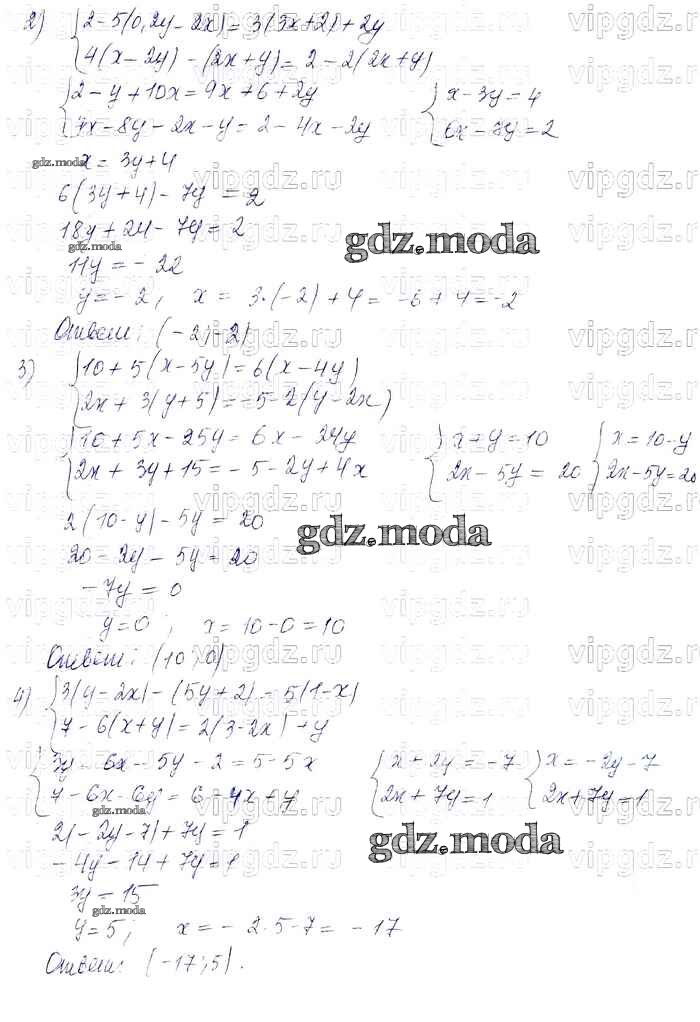 2) { 2 - 5(0,2y - 2x) = 3(3x+2) + 2y
4(x - 2y) - (2x + y) = 2 - 2(2x + y)
{ 2 - y + 10x = 9x + 6 + 2y { x - 3y = 4
4x - 8y - 2x - y = 2 - 4x - 2y 6x - 7y = 2
gdz.moda x = 3y + 4
6(3y + 4) - 7y = 2
18y + 24 - 7y = 2
gdz.moda
gdz.moda
11y = - 22
y = - 2, x = 3·(-2) + 4 = -6 + 4 = -2
Ответ: (-2; -2)
3) { 10 + 5(x - 5y) = 6(x - 4y)
2x + 3(y + 5) = -5 - 2(y - 2x)
{ 10 + 5x - 25y = 6x - 24y { x + y = 10 { x = 10 - y
2x + 3y + 15 = - 5 - 2y + 4x 2x - 5y = 20 2x - 5y = 20
2(10 - y) - 5y = 20
gdz.moda
20 - 2y - 5y = 20
- 7y = 0
y = 0 ; x = 10 - 0 = 10
Ответ: (10; 0)
4) { 3(y - 2x) - (5y + 2) = 5(1 - x)
7 - 6(x + y) = 2(3 - 2x) + y
{ 3y - 6x - 5y - 2 = 5 - 5x { x + 2y = -7 { x = -2y - 7
7 - 6x - 6y = 6 - 4x + y 2x + 7y = 1 2x + 7y = 1
gdz.moda
2(- 2y - 7) + 7y = 1
gdz.moda
- 4y - 14 + 7y = 1
3y = 15
gdz.moda
y = 5; x = - 2·5 - 7 = - 17
Ответ: (-17; 5).
vipgdz.ru